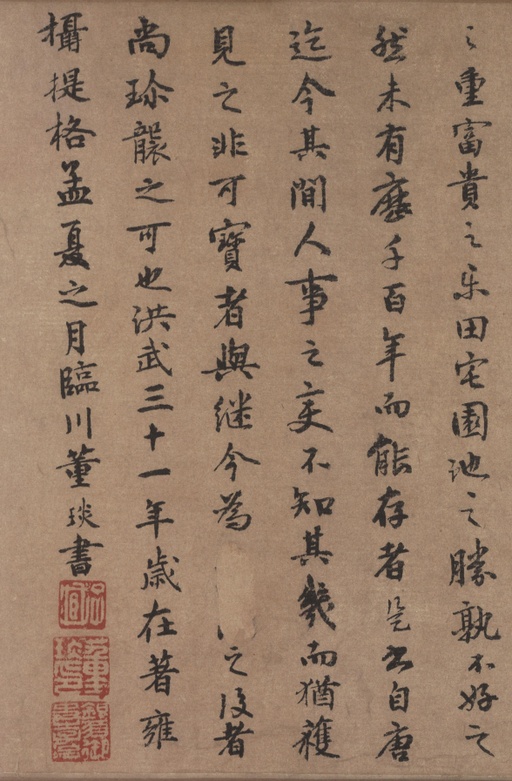 之重富貴之樂田宅園池之勝孰不好之
然未有歷千百年而能存者是書自唐
迄今其間人事之变不知其幾而猶獲
見之非可寶者與继今為之後者
尚珍襲之可也洪武三十一年歲在著雍
攝提格孟夏之月臨川董琰書